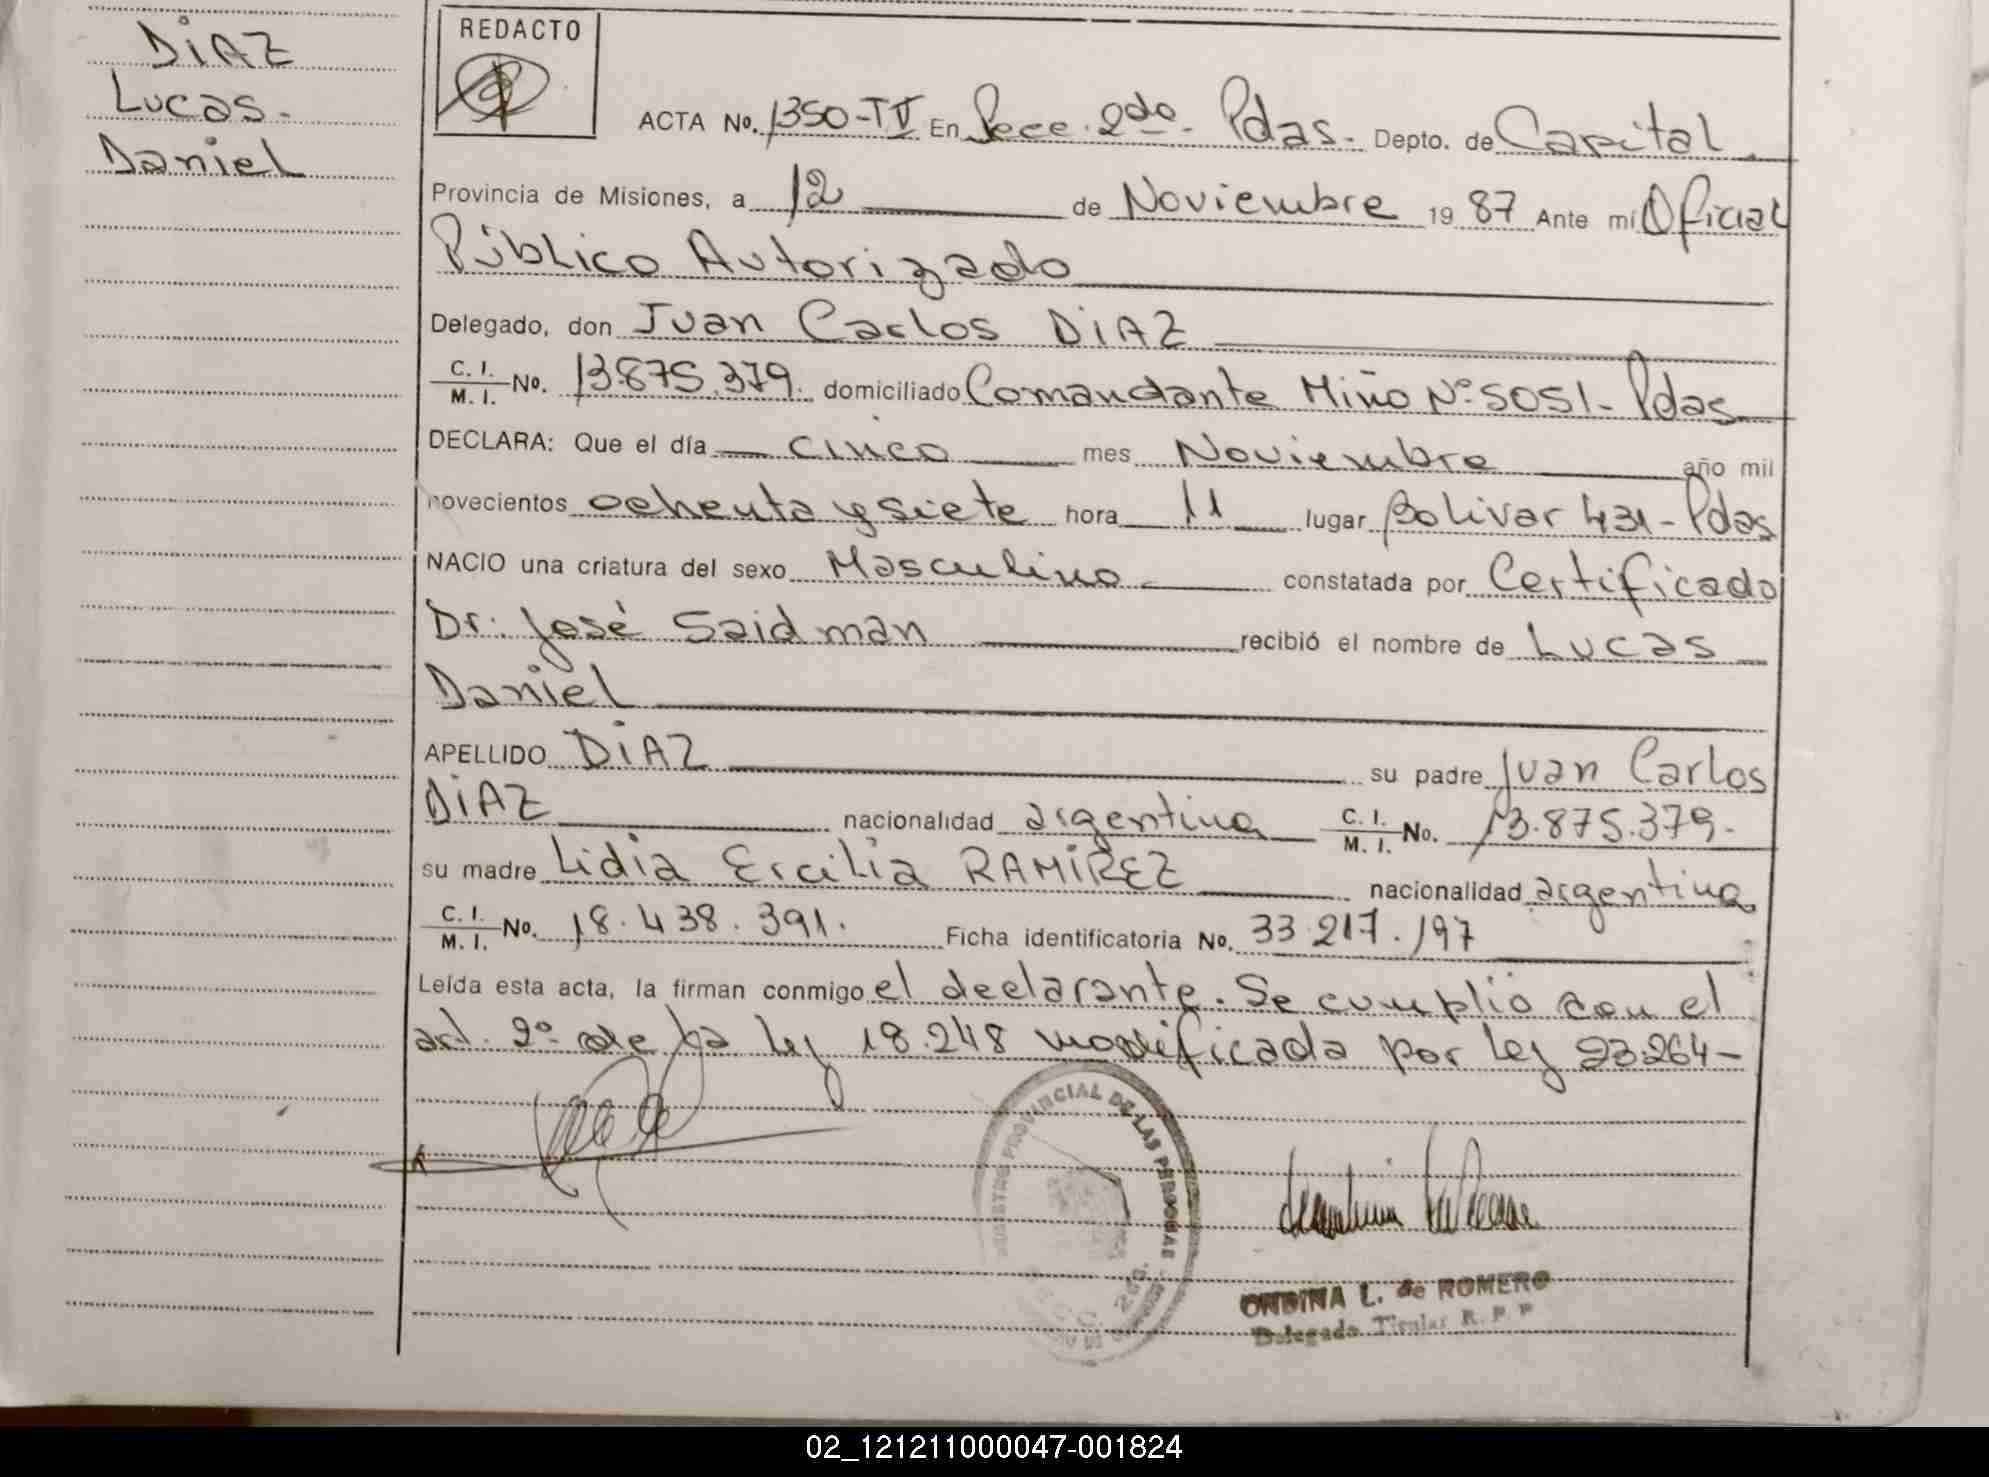 DIAZ
Lucas-
Daniel
REDACTO
ACTA No. 1350-TV En Secc. 2do- Pdas.- Depto. de Capital
Provincia de Misiones, a 12 de Noviembre 1987 Ante mí Oficial
Público Autorizado
Delegado, don Juan Carlos DIAZ
C. I. / M. I. No. 13.875.379. domiciliado Comandante Miño Nº 5051- Pdas
DECLARA: Que el día cinco mes Noviembre año mil
novecientos ochenta y siete hora 11 lugar Bolivar 431- Pdas
NACIO una criatura del sexo Masculino constatada por Certificado
Dr. José Saidman recibió el nombre de Lucas
Daniel
APELLIDO DIAZ su padre Juan Carlos
DIAZ nacionalidad argentina C. I. / M. I. No. 13.875.379.
su madre Lidia Ercilia RAMIREZ nacionalidad argentina
C. I. / M. I. No. 18.438.391. Ficha identificatoria No. 33.217.197
Leída esta acta, la firman conmigo el declarante. Se cumplió con el
art. 2º de la ley 18.248 modificada por ley 23.264-
REGISTRO PROVINCIAL DE LAS PERSONAS
ONDINA L. de ROMERO
Delegada Titular R. P. P
02_121211000047-001824